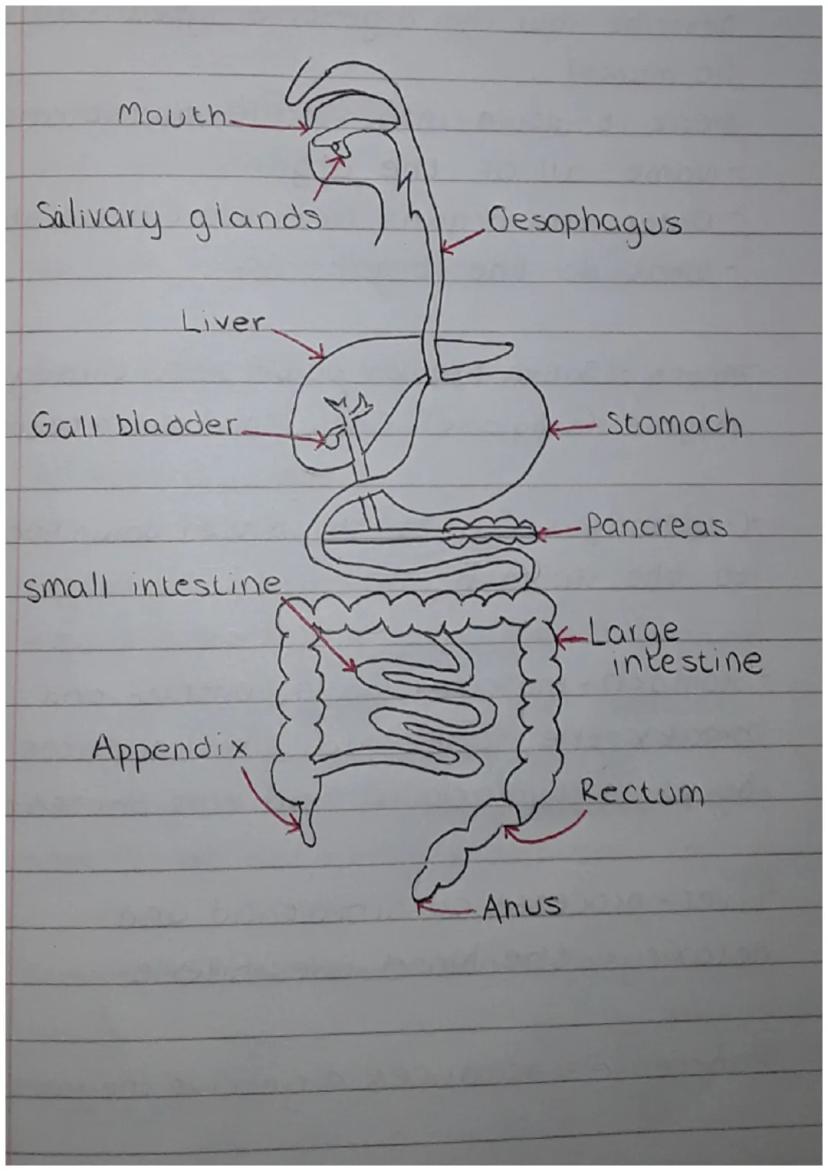 Mouth
Salivary glands
Oesophagus
Liver
Gall bladder
Stomach
Pancreas
small intestine
Large
intestine
Appendix
Rectum
Anus